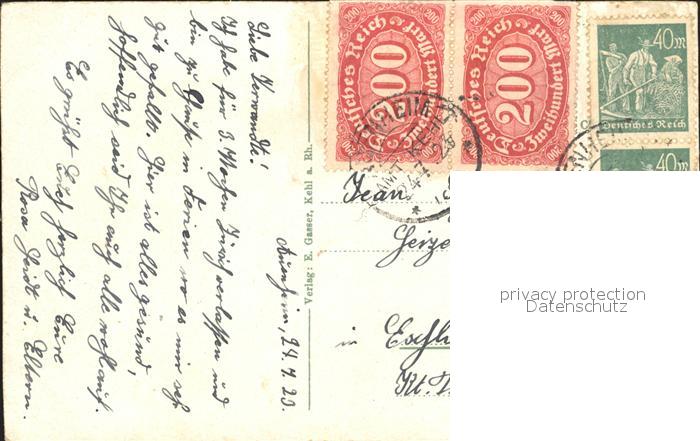 Auenheim, 24.7.23.
Liebe Verwandte!
Ich habe für 3 Wochen Zürich verlassen und
bin zu Hause in Ferien wo es mir sehr
gut gefällt. Hier ist alles gesund,
hoffentlich seid Ihr auch alle wohlauf.
Es grüßt Euch herzlich Eure
Rosa u. Eltern.
Verlag: E. Gasser, Kehl a. Rh.
Deutsches Reich
200
200
200
Zweihundert Mark
Deutsches Reich
200
200
200
Zweihundert Mark
40 M
Deutsches Reich
40 M
Jean
in
Kt.
privacy protection
Datenschutz